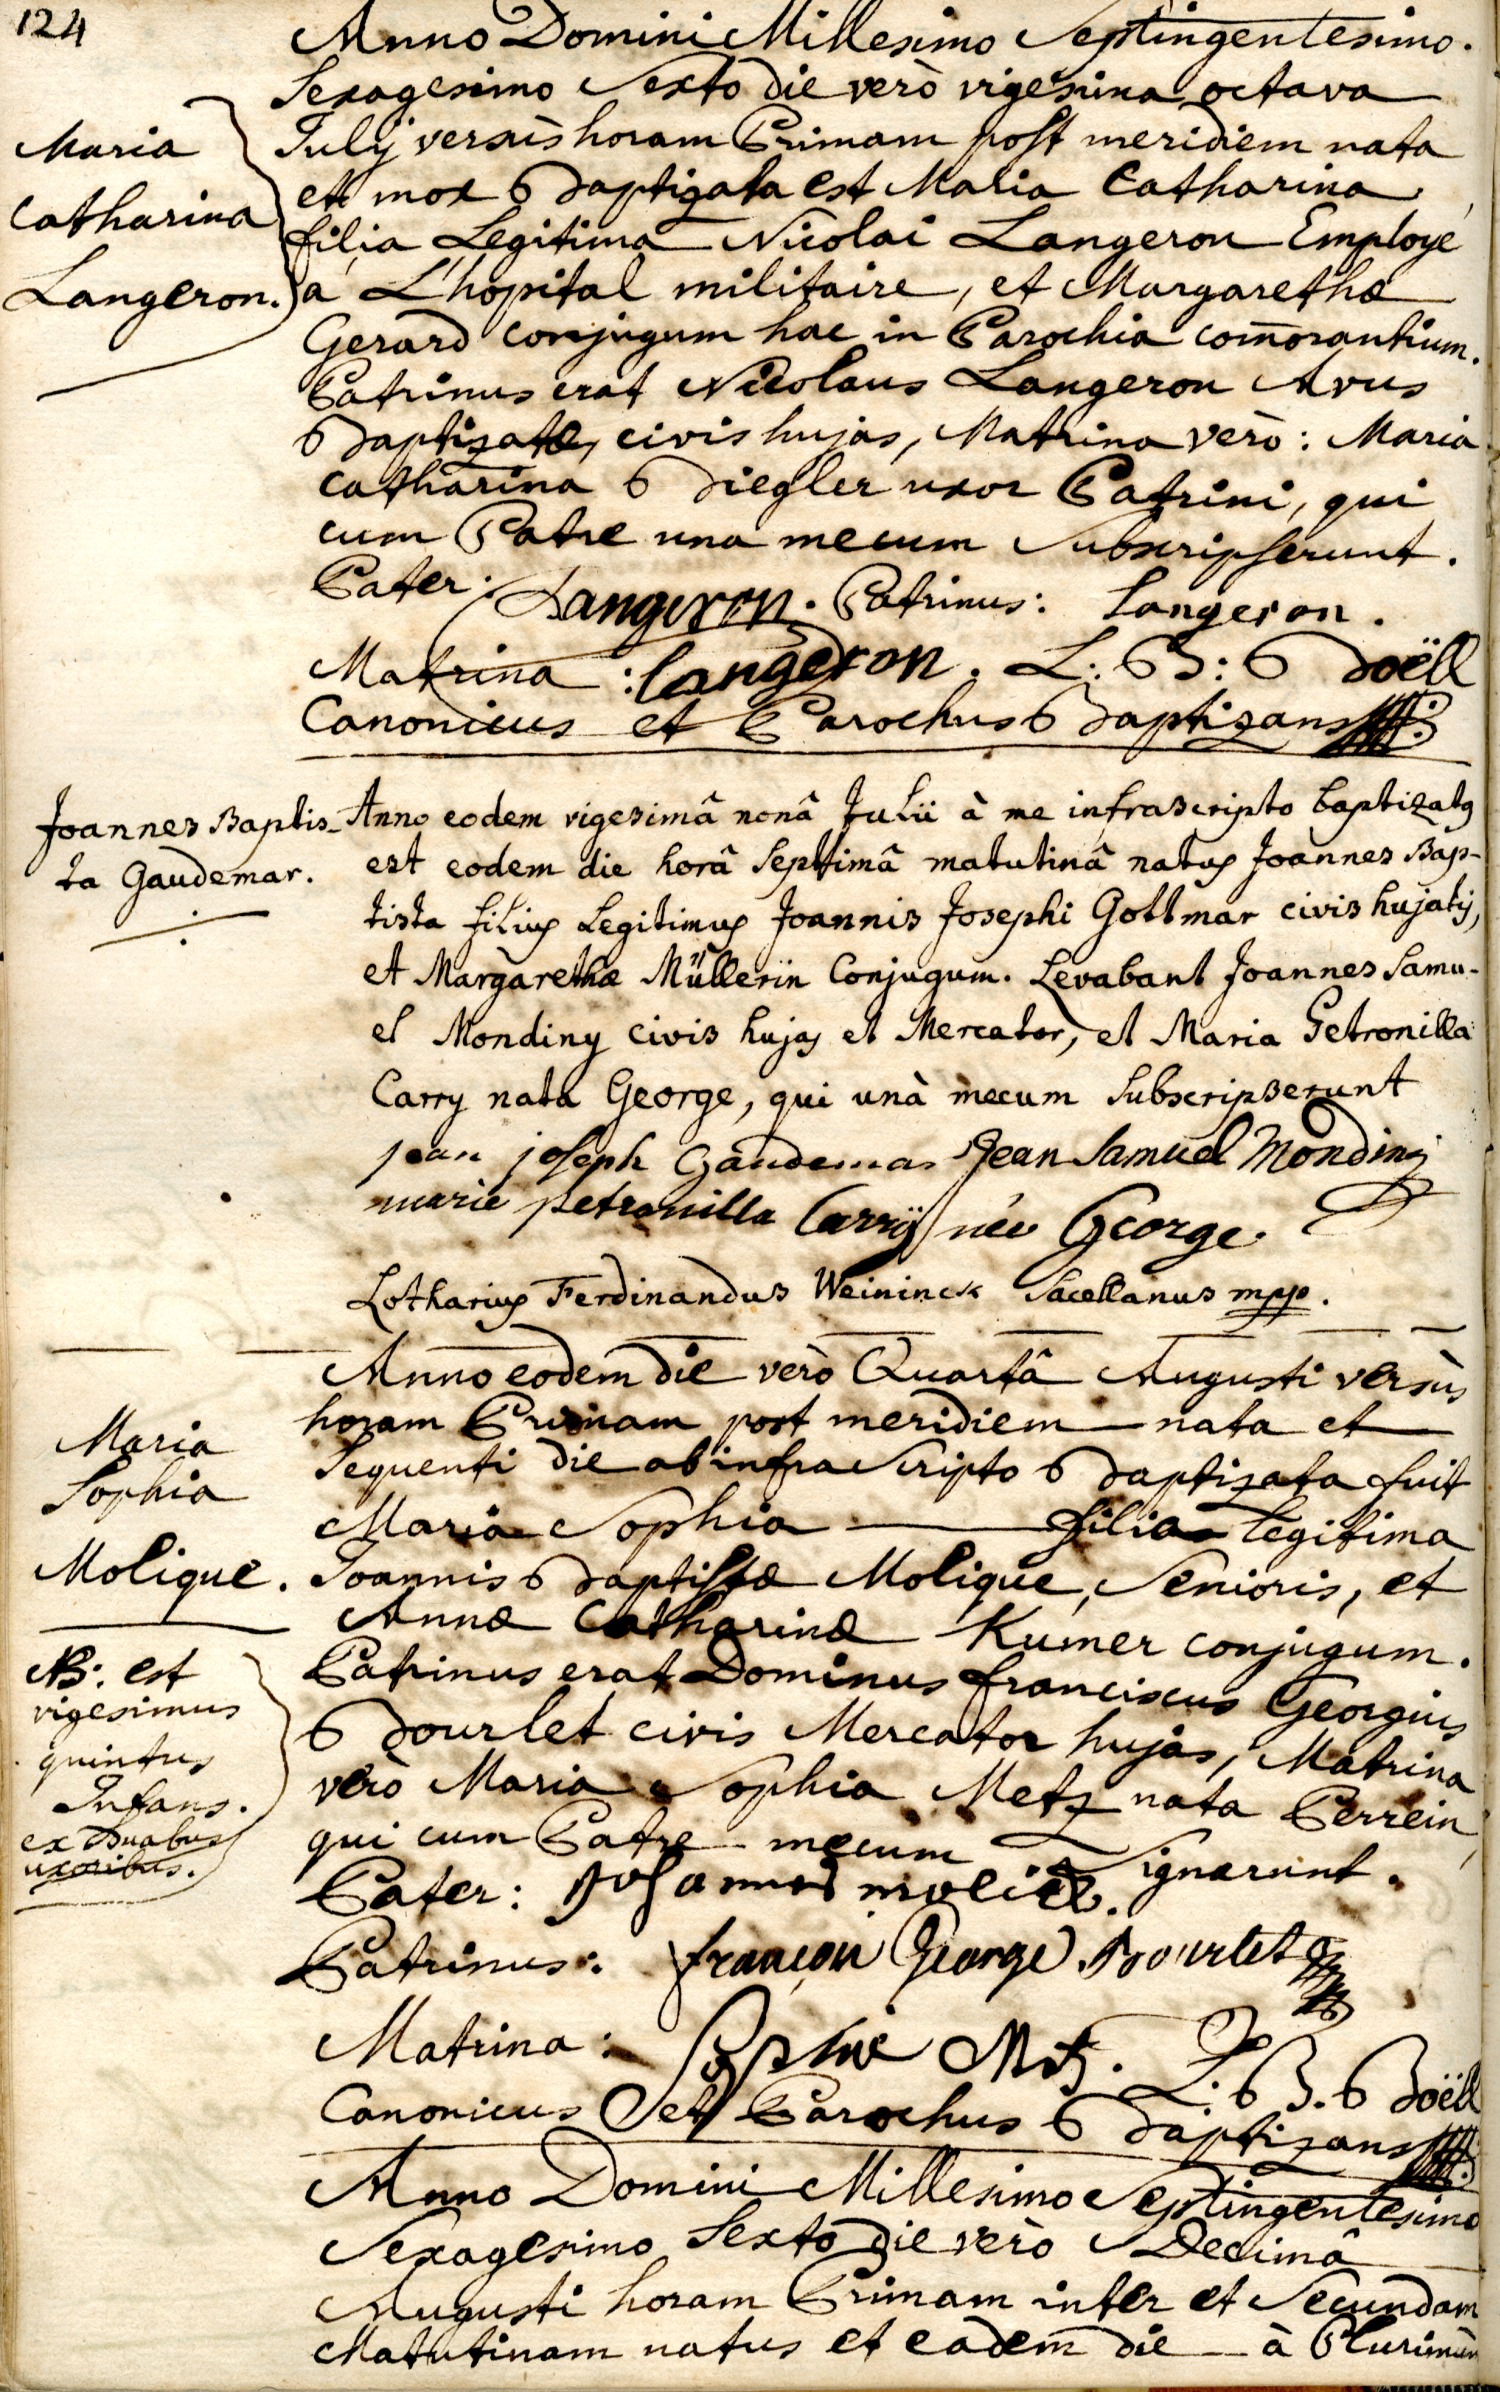 124
Anno Domini Millesimo Septingentesimo.
Sexagesimo Sexto die verò vigesima octava
July versùs horam Primam post meridiem nata
et mox Baptizata est Maria Catharina
filia Legitima Nicolai Langeron Employé
à L'hopital militaire, et Margarethæ
Gerard conjugum hac in Parochia com̄orantium.
Patrinus erat Nicolaus Langeron Avus
Baptizatæ, civis hujas, Matrina verò: Maria
Catharina Biegler uxor Patrini, qui
cum Patre una mecum Subscripserunt.
Pater: Langeron. Patrinus: Langeron.
Matrina: langeron. L: B: Boëll
Canonicus et Parochus Baptizans
Maria
Catharina
Langeron.
Joannes Baptis-
ta Gaudemar.
Anno eodem vigesimâ nonâ Julii à me infrascripto baptizatus
est eodem die horâ Septimâ matutinâ natus Joannes Bap-
tista filius Legitimus Joannis Josephi Gottmar civis hujatis,
et Margarethæ Müllerin Conjugum. Levabant Joannes Samu-
el Mondiny civis hujas et Mercator, et Maria Petronilla
Carry nata George, qui unà mecum Subscripserunt
jean joseph Gaudemar Jean Samuel Mondiny
marie petronilla Carrÿ née George.
Lotharius Ferdinandus Weininck Sacellanus mpp.
Anno eodem die verò Quartâ Augusti versùs
horam Primam post meridiem nata et
Sequenti die ab infra Scripto Baptizata fuit
Maria Sophia filia legitima
Joannis Baptistæ Molique, Senioris, et
Annæ Catharinæ Kumer conjugum.
Patrinus erat Dominus franciscus Georgius
Bourlet civis Mercator hujas, Matrina
verò Maria Sophia Metz nata Perrein,
qui cum Patre mecum Signarunt.
Pater: Johannes molick.
Patrinus: françois George Bourlet
Matrina: Sophie Metz. L. B. Boëll
Canonicus et Parochus Baptizans
Maria
Sophia
Molique.
NB: est
vigesimus
quintus
Infans.
ex duabus
uxoribus.
Anno Domini Millesimo Septingentesimo
Sexagesimo Sexto die verò Decimâ
Augusti horam Primam inter et Secundam
Matutinam natus et eadem die à Plurimùm